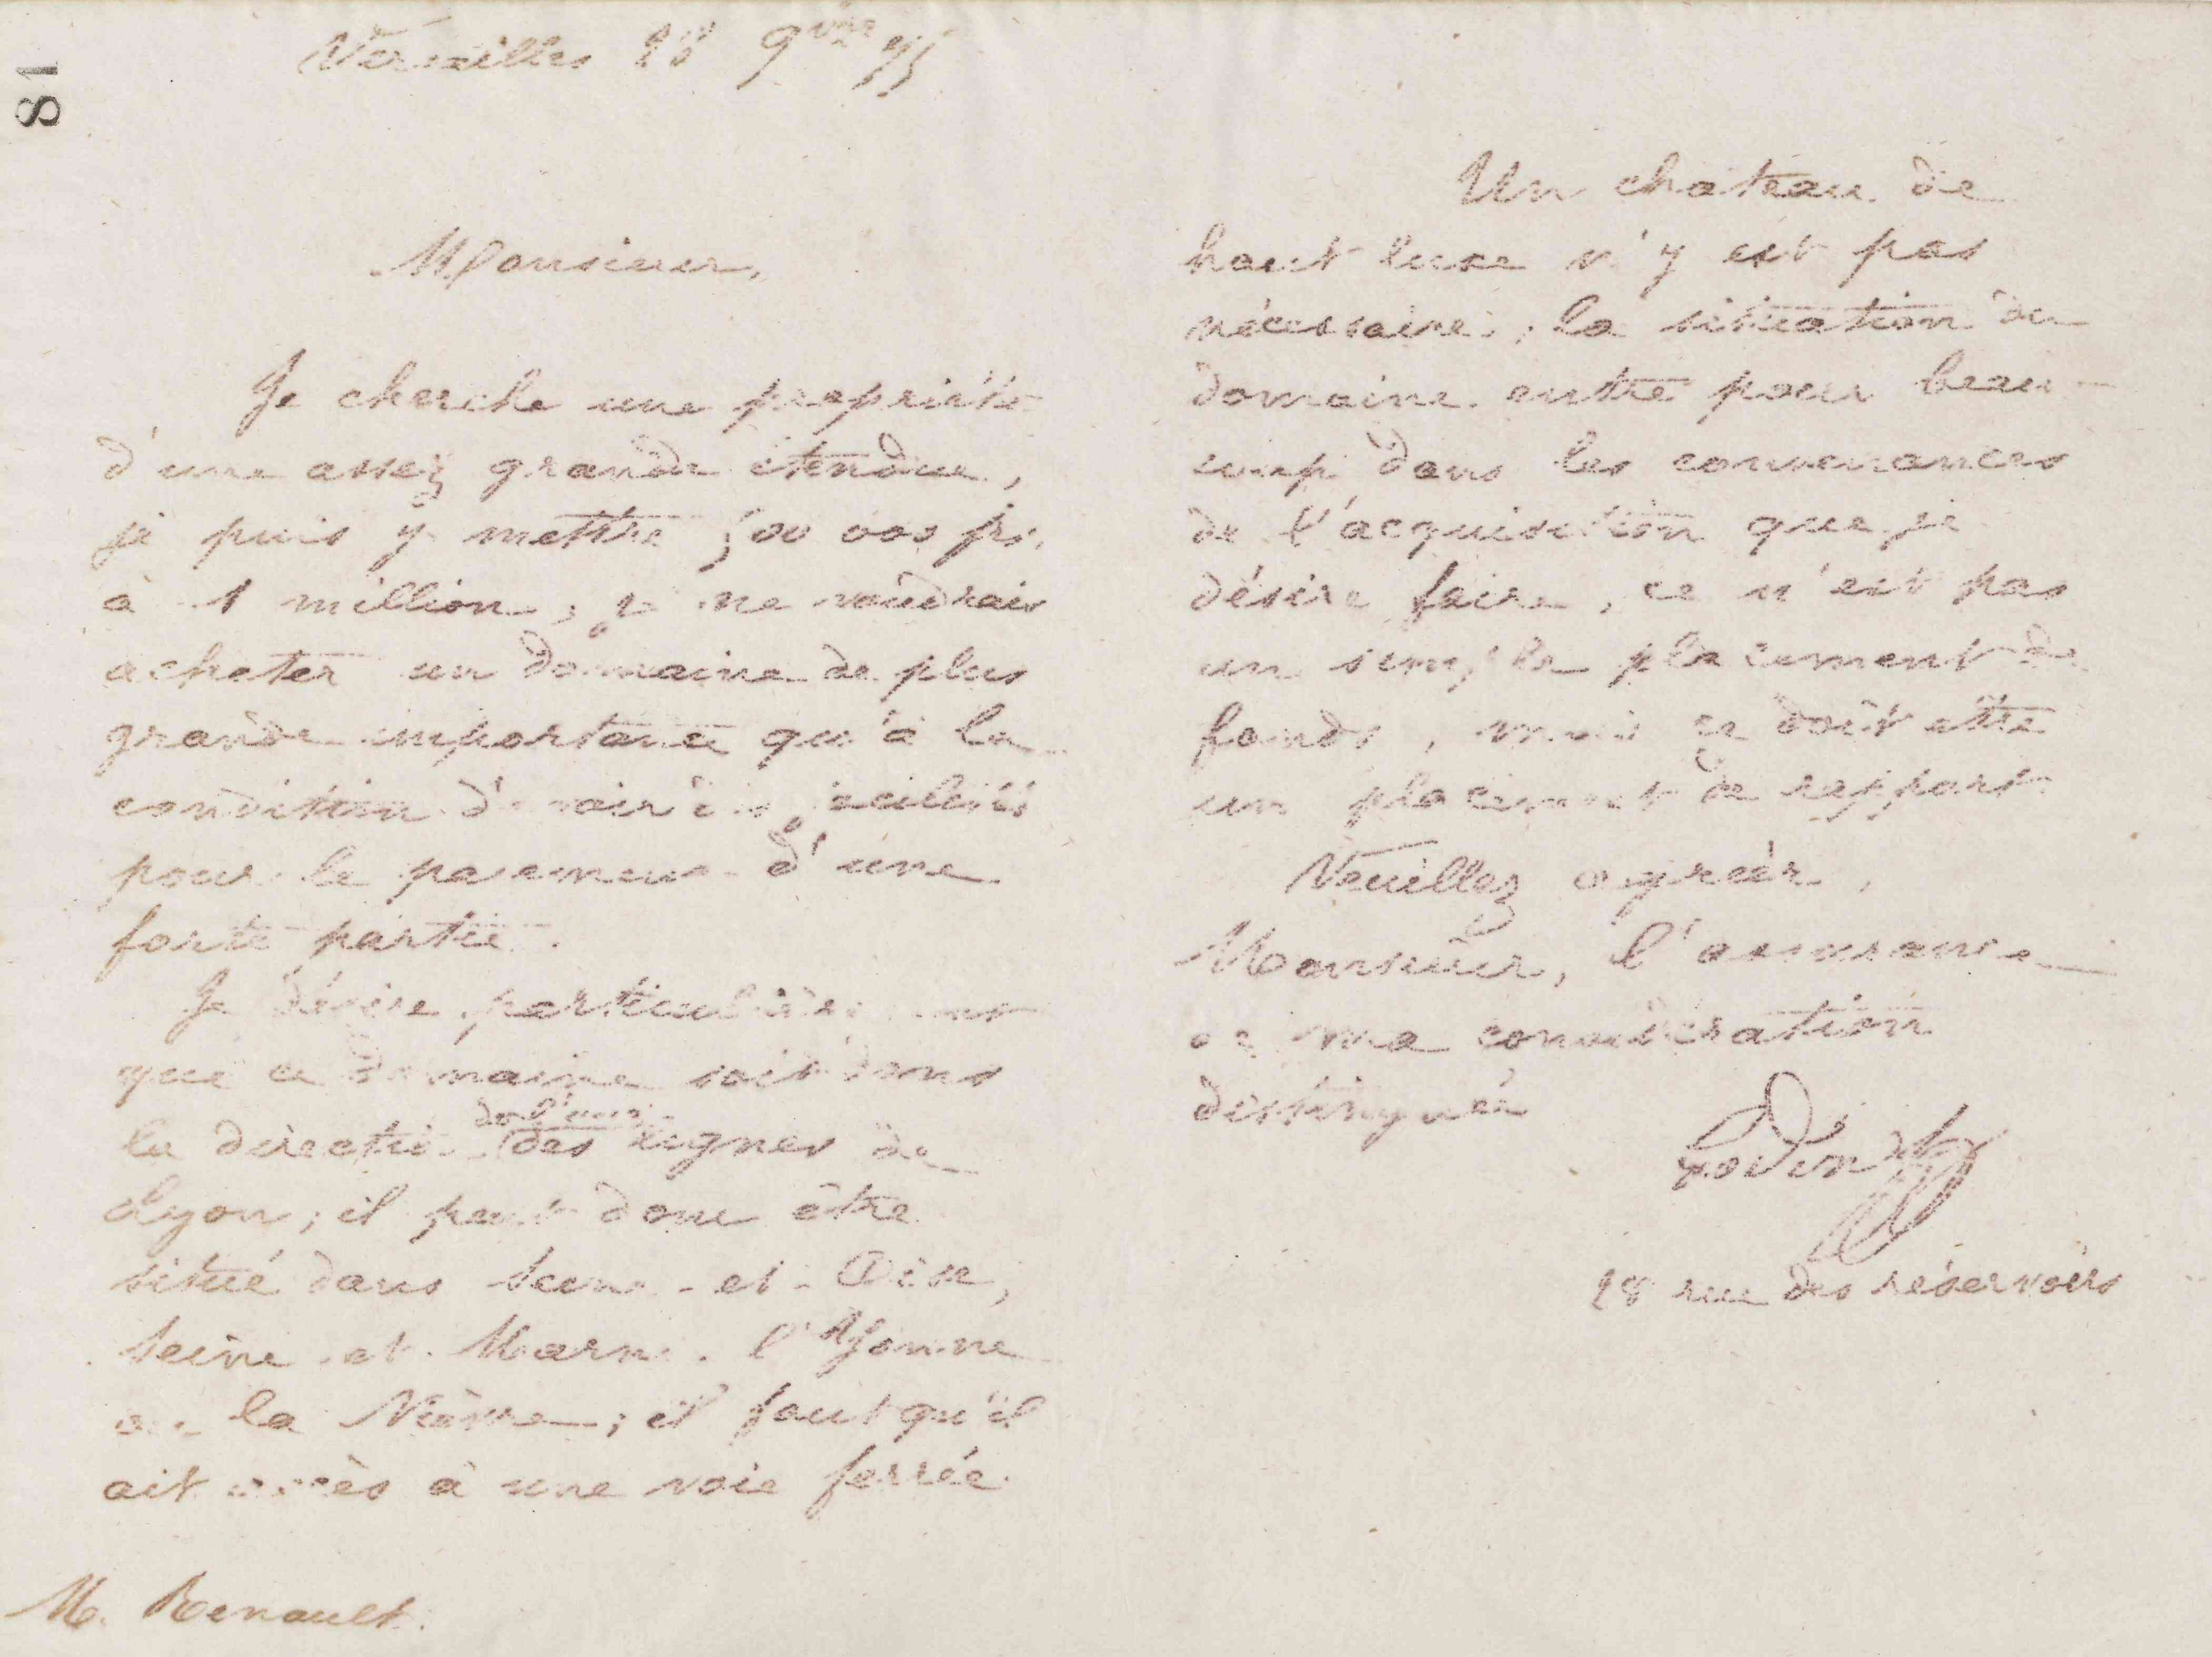 81
Versailles 28 9bre 75
Monsieur,
Je cherche une propriété
d'une assez grande étendue,
je puis y mettre 500 000 frs.
à 1 million, je ne voudrais
acheter un domaine de plus
grande importance qu'à la
condition d'avoir des facilités
pour le paiement d'une
forte partie.
Je désire particulièrement
que ce domaine soit dans
la direction de l'une des lignes de
Lyon; il peut donc être
situé dans Seine-et-Oise,
Seine et Marne. l'Yonne
ou la Nièvre; il faut qu'il
ait accès à une voie ferrée.
M. Renault.
Un château de
haut luxe n'y est pas
nécessaire; la situation du
domaine entre pour beau-
coup dans les convenances
de l'acquisition que je
désire faire, ce n'est pas
un simple placement de
fonds, mais ce doit être
un placement de rapport.
Veuillez agréer,
Monsieur, l'assurance
de ma considération
distinguée
Godin
28 rue des réservoirs